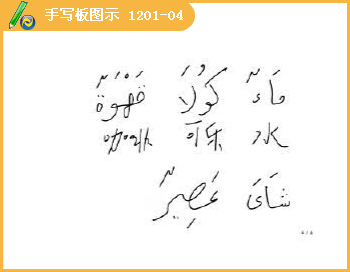 手写板图示 1201-04
مَاءٌ كُولَا قَهْوَةٌ
咖啡 可乐 水
شَاي عَصِيرٌ